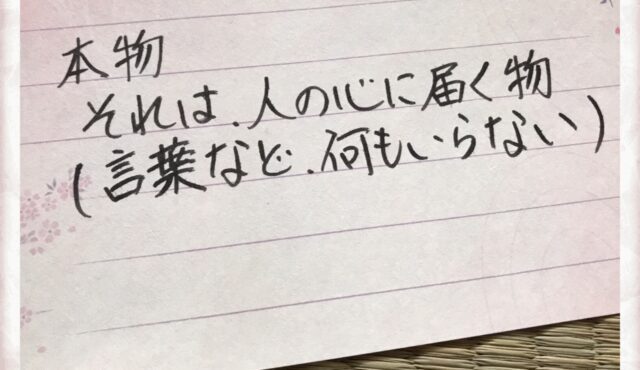 本物
それは、人の心に届く物
(言葉など、何もいらない)